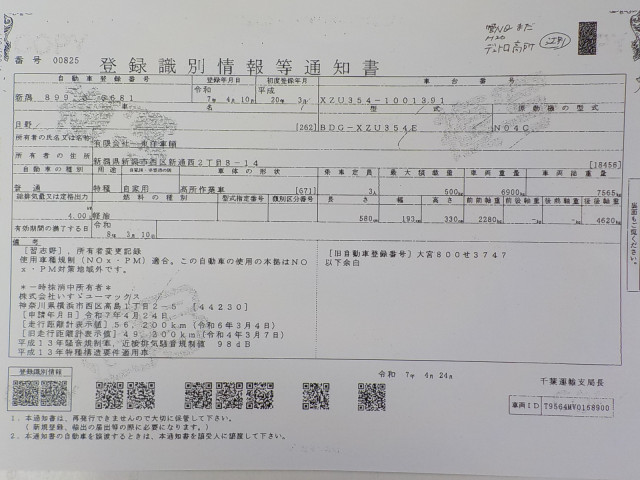 番号 00825 登録識別情報等通知書
自動車登録番号 登録年月日 初度登録年月 車台番号
899 681 令和 7年 4月 10日 平成 20年 3月 XZU354-1001391
車名 型式 原動機の型式
日野 [262] BDG-XZU354E N04C
所有者の氏名又は名称 有限会社 車輌
所有者の住所 新潟県新潟市西区新通西2丁目8-14 [18456]
自動車の種別 用途 自家用・事業用の別 車体の形状 乗車定員 最大積載量 車両重量 車両総重量
普通 特種 自家用 高所作業車 [671] 3人 500kg 6900kg 7565kg
総排気量又は定格出力 燃料の種類 型式指定番号 類別区分番号 長さ 幅 高さ 前前軸重 前後軸重 後前軸重 後後軸重
4.00 軽油 580cm 193cm 330cm 2280kg -kg -kg 4620kg
有効期間の満了する日 令和 8年 3月 10日
備考
[習志野],所有者変更記録 [旧自動車登録番号]大宮800せ3747
使用車種規制(NOx・PM)適合。この自動車の使用の本拠はNO 以下余白
x・PM対策地域外です。
*一時抹消中所有者*
株式会社いすゞユーマックス
神奈川県横浜市西区高島1丁目2-5 [44230]
[申請年月日]令和7年4月24日
[走行距離計表示値]56,200km(令和6年3月4日)
[旧走行距離計表示値]49,300km(令和4年3月7日)
平成13年騒音規制車,近接排気騒音規制値 98dB
平成13年特種構造要件適用車
令和 7年 4月 24日
登録識別情報 千葉運輸支局長
車両ID 79564MV0168900
1.本通知書は、再発行できませんので大切に保管して下さい。
(新規登録、輸出の届出等の際に必要になります。)
2.本通知書の自動車を譲渡するときは、本通知書を譲受人に譲渡して下さい。
裏面もご覧ください。